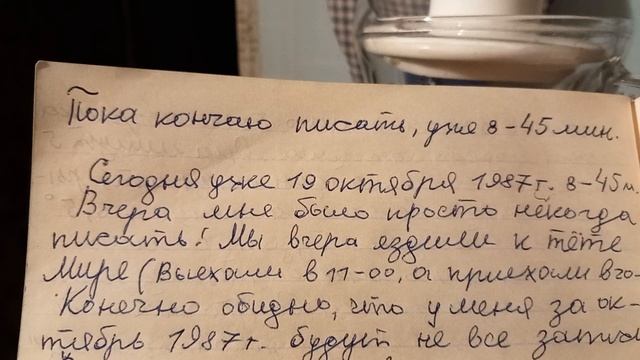 Пока кончаю писать, уже 8-45 мин.
Сегодня уже 19 октября 1987г. 8-45м.
Вчера мне было просто некогда
писать! Мы вчера ездили к тёте
Мире (Выехали в 11-00, а приехали в 20-
Конечно обидно, что у меня за ок-
тябрь 1987г. будут не все запис